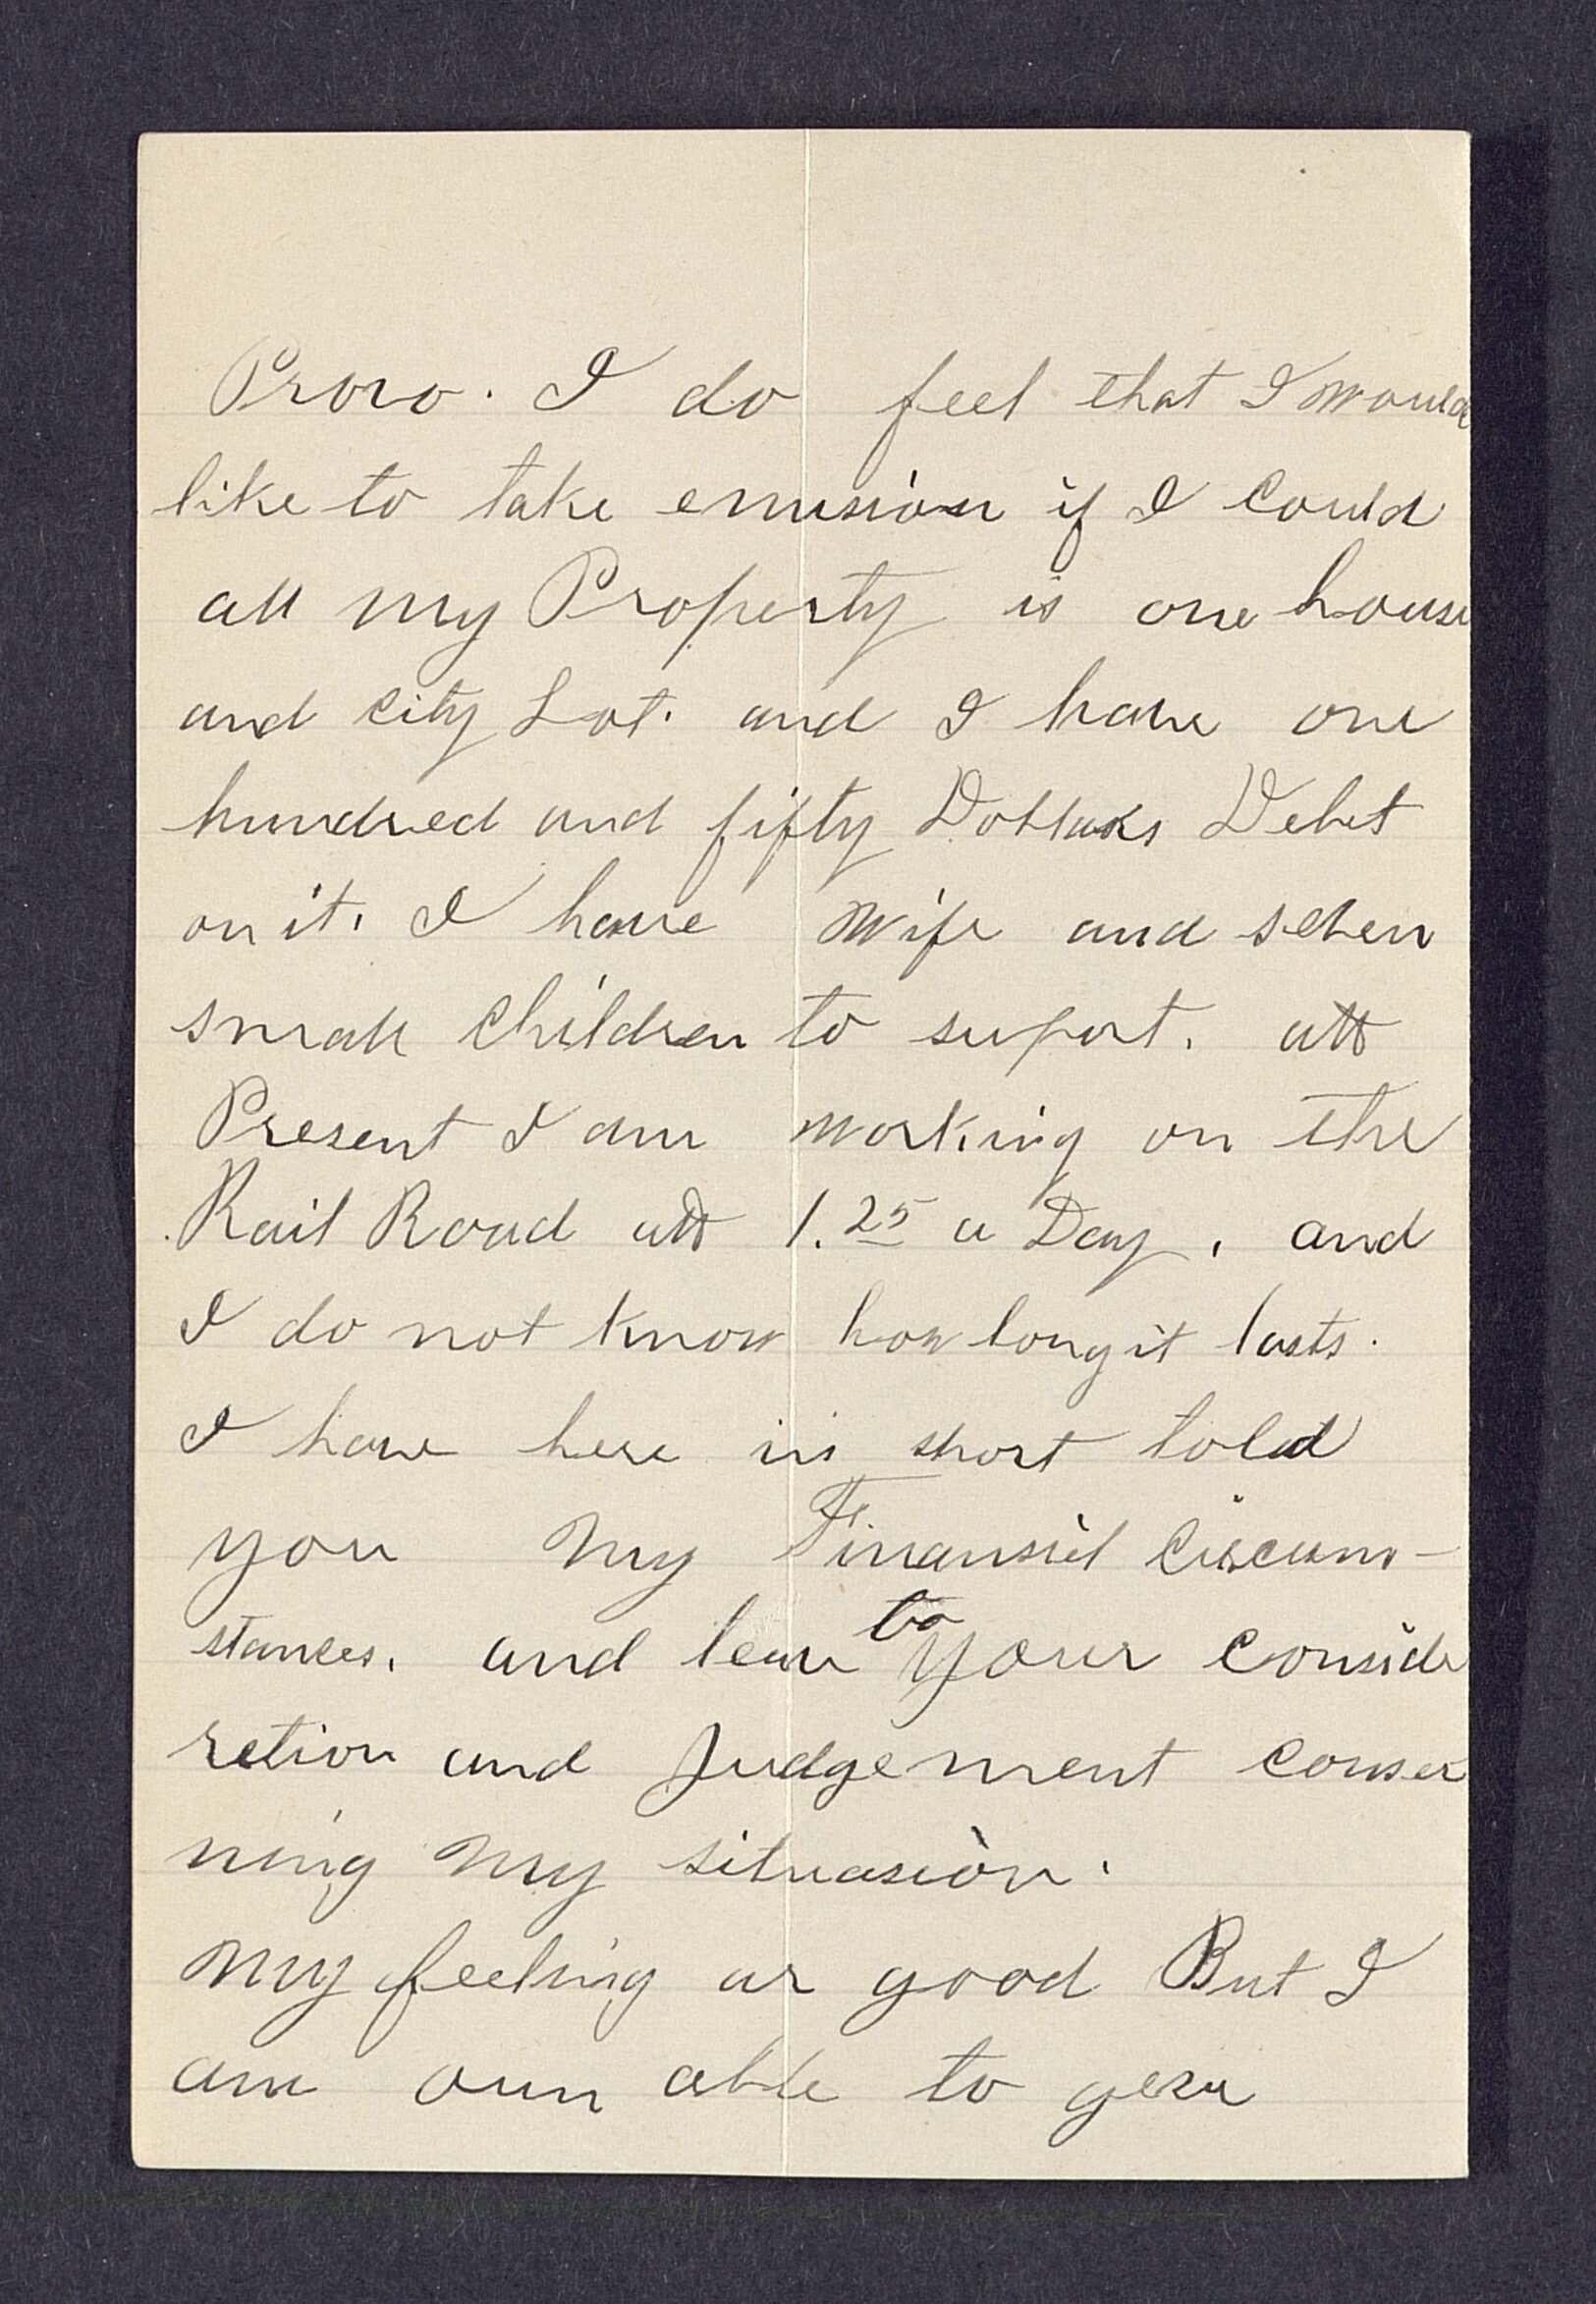 Provo. I do feel that I would
like to take emission if I could
all my Property is one house
and City Lot. and I have one
hundred and fifty Dollars Debet
on it. I have wife and seven
small Children to suport. att
Present I am working on the
Rail Road att 1.25 a Day, and
I do not know how long it lasts.
I have here in short told
you my Finansiel Circum-
stances. and leav to your conside
retion and Judgement conser
ning my situasion.
My feeling ar good But I
am oun able to